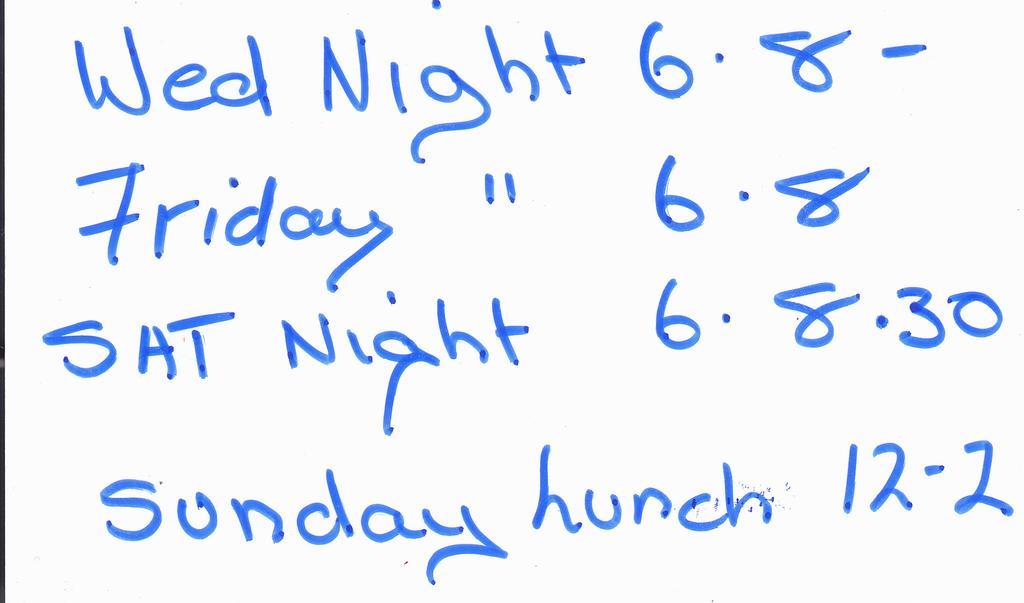 Wed Night 6.8-
Friday " 6.8
SAT Night 6.8.30
Sunday Lunch 12-2